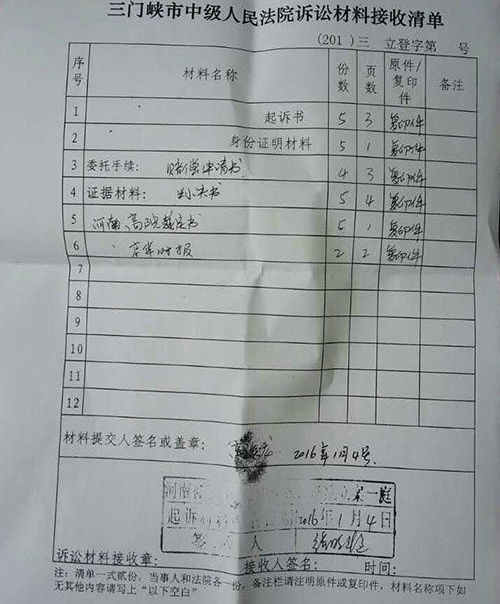 三门峡市中级人民法院诉讼材料接收清单
(201 ) 三 立登字第 号
序号 材料名称 份数 页数 原件/复印件 备注
1 起诉书 5 3 复印件
2 身份证明材料 5 1 复印件
3 委托手续: 赔偿申请书 4 3 复印件
4 证据材料: 判决书 5 4 复印件
5 河南高院裁定书 5 1 复印件
6 京华时报 2 2 复印件
7
8
9
10
11
12
材料提交人签名或盖章: 2016年1月4号
河南省 立案一庭
起诉 2016年1月4日
签 人
诉讼材料接收章: 接收人签名: 时间:
注: 清单一式贰份, 当事人和法院各一份, 备注栏请注明原件或复印件, 材料名称项下如
无其他内容请写上“以下空白”